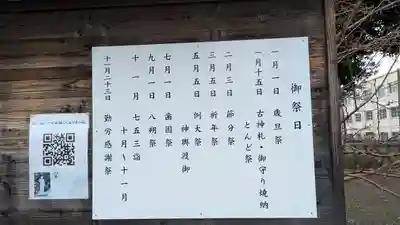 御祭日
一月一日 歳旦祭
一月十五日 古神札・御守り焼納
とんど祭
二月三日 節分祭
三月五日 祈年祭
五月五日 例大祭
神輿渡御
七月一日 歯固祭
九月一日 八朔祭
十一月 七五三詣
十月～十一月
十一月二十三日 勤労感謝祭